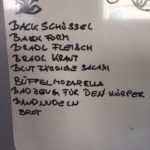 BACK SCHÜSSEL
BACK FORM
BRADL FLEISCH
BRADL KRAUT
BLUTZARIGE SALAMI
BÜFFELMOZARELLA
BADZEUG FÜR DEN KÖRPER
BANDNUDELN
BROT